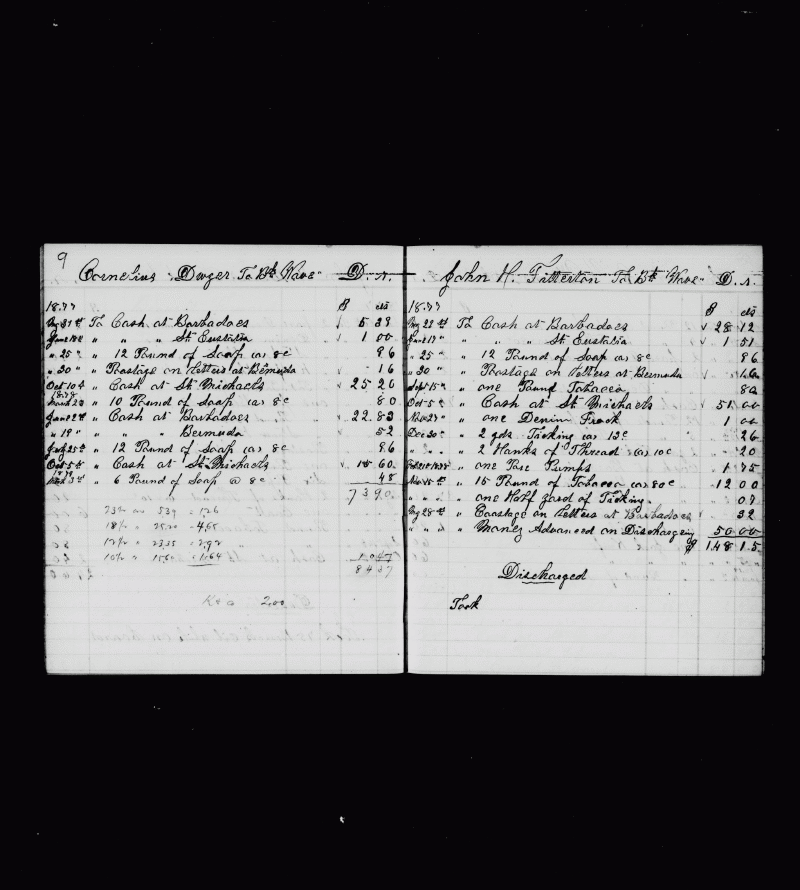 9
Cornelius Dwyer To Bk "Wave" D.r.
1877
$ cts
Aug 31st To Cash at Barbadoes √ 5 39
June 18th " " " St Eustatia √ 1 00
" 25" " 12 Pound of Soap (a) 8c 96
" 30" " Postage on Letters at Bermuda √ 16
Oct 10th " Cash at St Michaels √ 25 20
1878
March 23 " 10 Pound of Soap (a) 8c 80
June 2nd " Cash at Barbadoes √ 22.83
" 19" " " " Bermuda √ 52
July 25th " 12 Pound of Soap (a) 8c 96
Oct 5th " Cash at St Michaels √ 15 60
1879
3d " 6 Pound of Soap @ 8c 48
73 90
23% on 539 = 1.26
18% " 25.20 = 4.65
12% " 23.35 = 2.92
10% " 15.60 = 1.64
10.47
84 37
200
John H. Titterton To Bk "Wave" D.r.
1877
$ cts
Aug 22nd To Cash at Barbadoes √ 28 12
June 17" " " " St Eustatia √ 1 51
" 25" " 12 Pound of Soap (a) 8c 96
" 30" " Postage on Letters at Bermuda √ 16
Sept 15" " one Pound Tobacco 80
Oct 5th " Cash at St Michaels √ 51 00
Nov 27" " one Denim Frock 1 00
Dec 30" " 2 yds. Ticking (a) 13c 26
" " " 2 Hanks of Thread (a) 10c 20
1878 " one Pare Pumps 1 75
Nov 15th " 15 Pound of Tobacco (a) 80c 12 00
" " " one Half yard of Ticking. 07
Aug 28th " Postage on Letters at Barbadoes 32
" " " Money Advanced on Discharging 50 00
$ 148 15
Discharged
Took